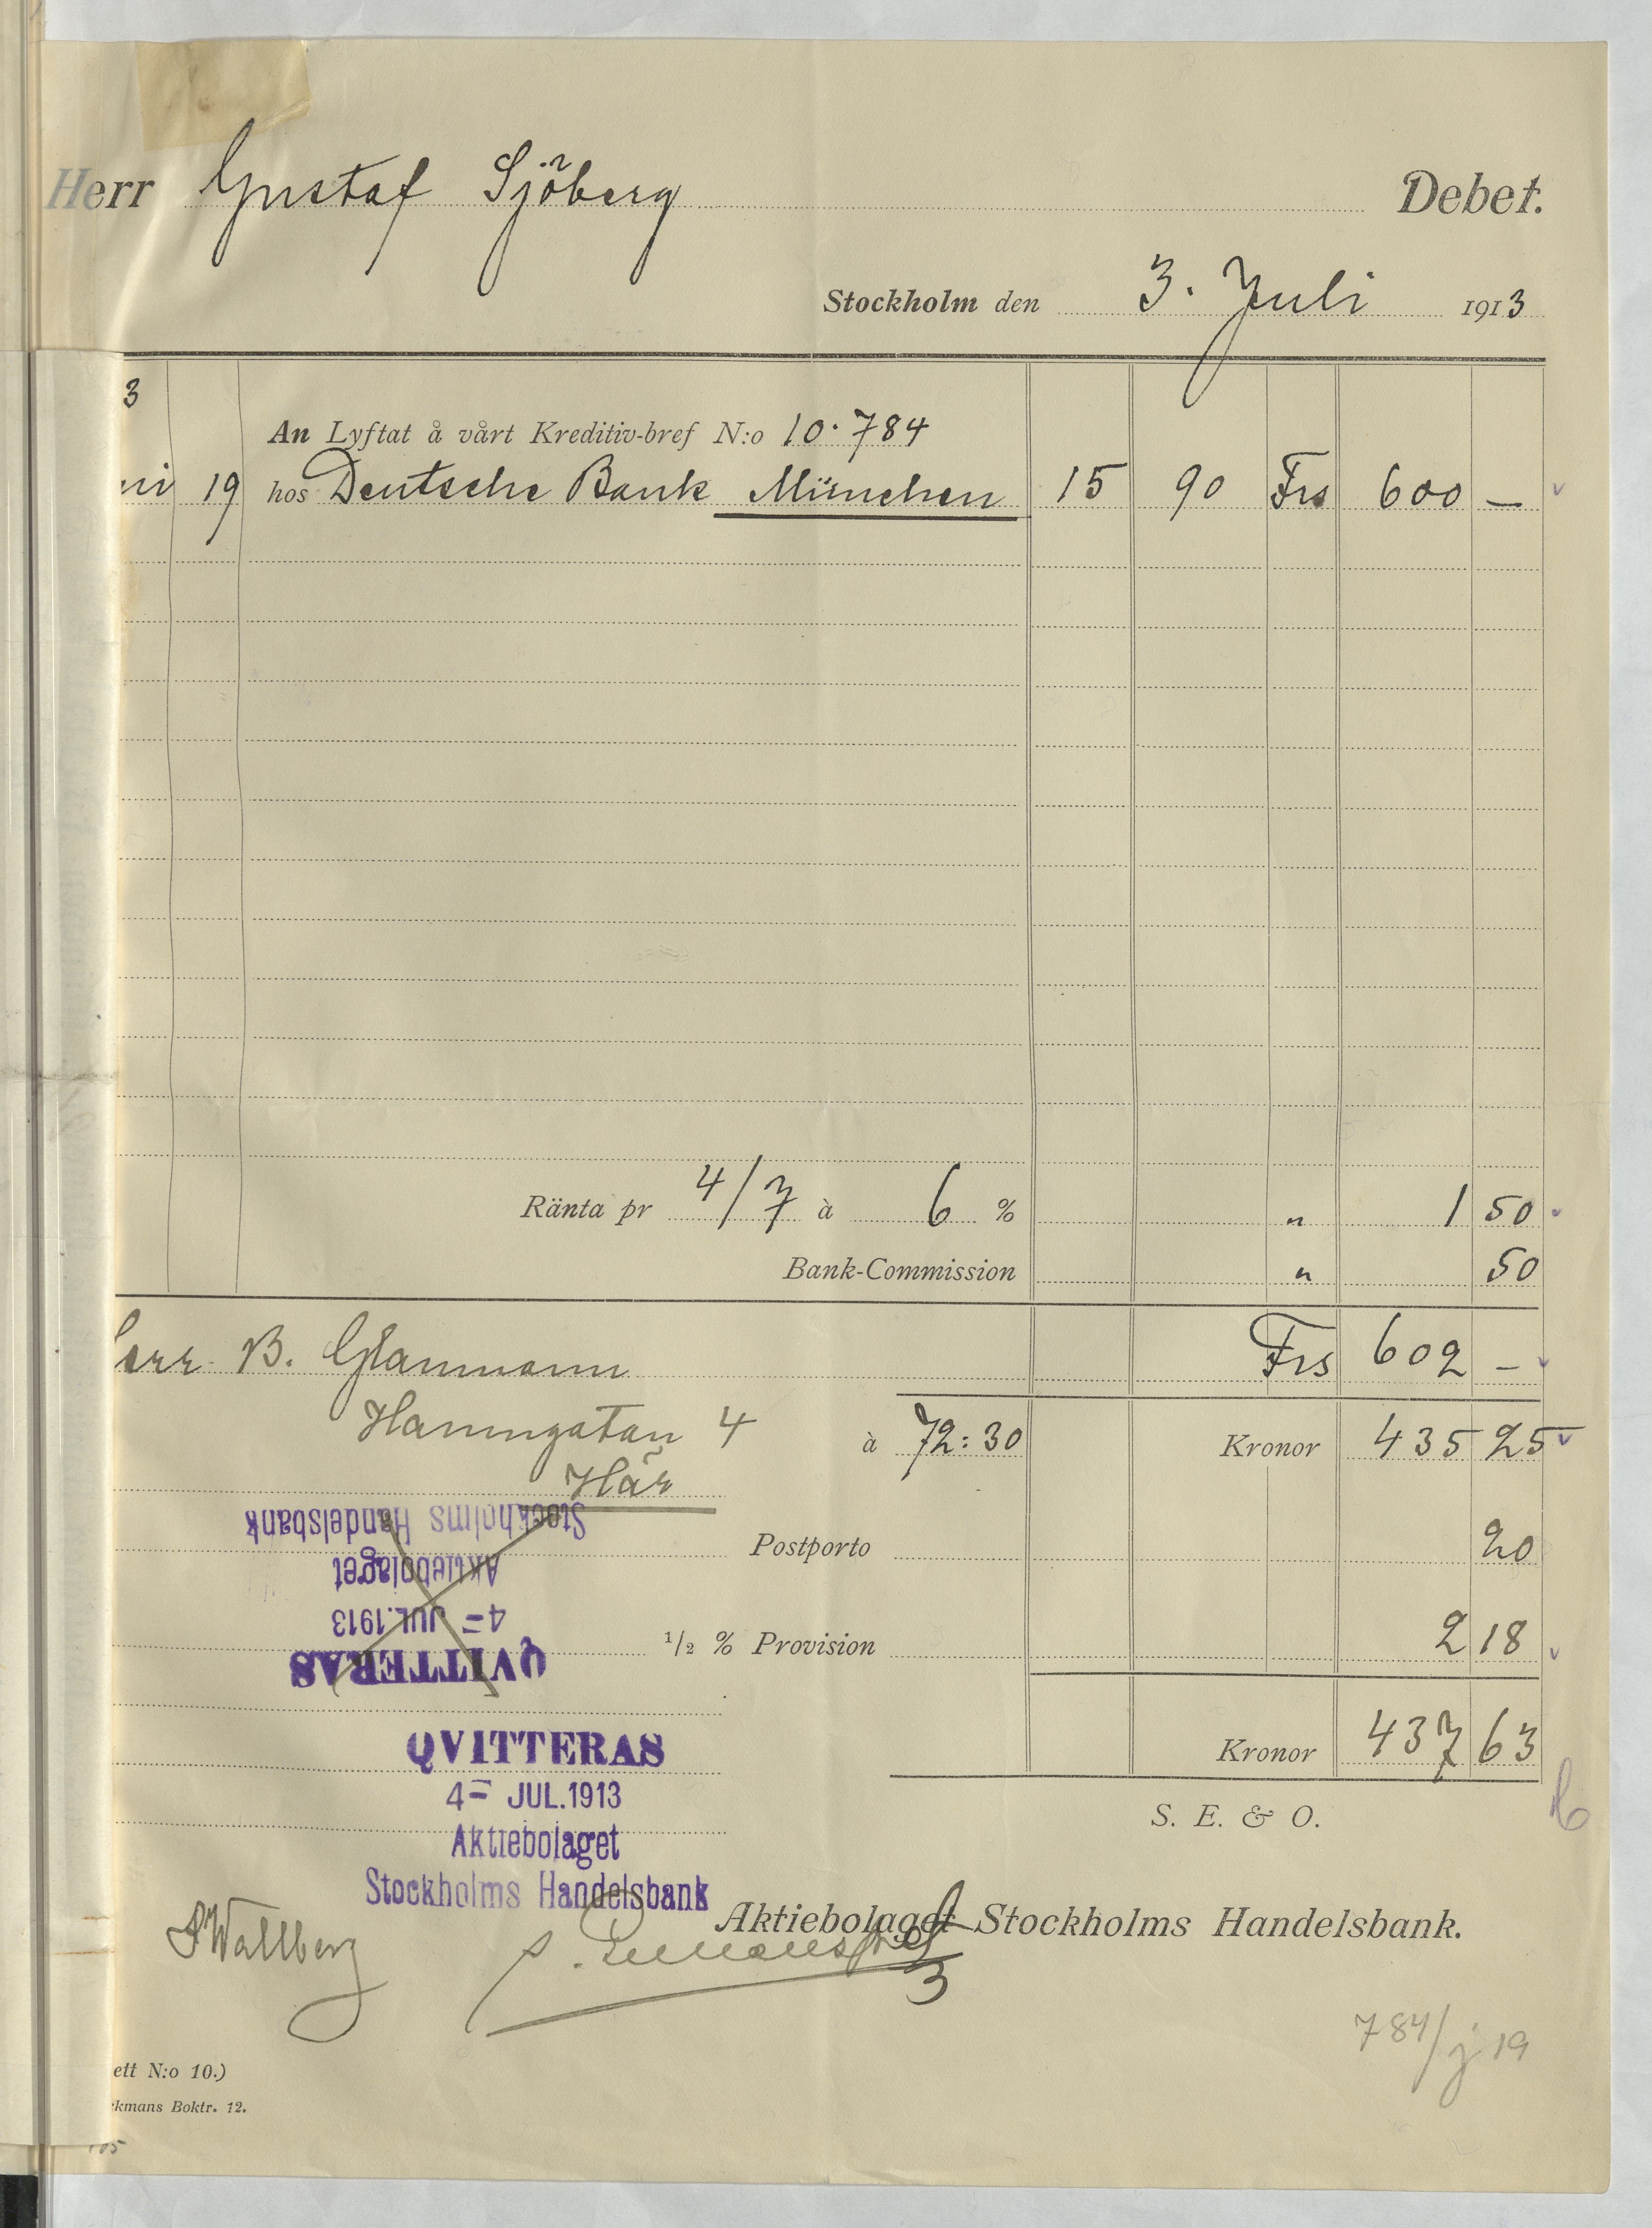 Herr Gustaf Sjöberg Debet.
Stockholm den 3. Juli 1913
3
An Lyftat å vårt Kreditiv-bref N:o 10.784
ni 19 hos Deutsche Bank München 15 90 Frs 600 —
Ränta pr 4/7 à 6 % " 1 50
Bank-Commission " 50
Herr B. Glanmann Frs 602 —
Hamngatan 4 à 72:30 Kronor 435 25
Här
Stockholms Handelsbank
Aktiebolaget
4= JUL.1913
QVITTERAS
Postporto 20
1/2 % Provision 2 18
QVITTERAS
4= JUL.1913
Aktiebolaget
Stockholms Handelsbank
Kronor 437 63
S. E. & O.
Aktiebolaget Stockholms Handelsbank.
Wallberg
784/j 19
ett N:o 10.)
kmans Boktr. 12.